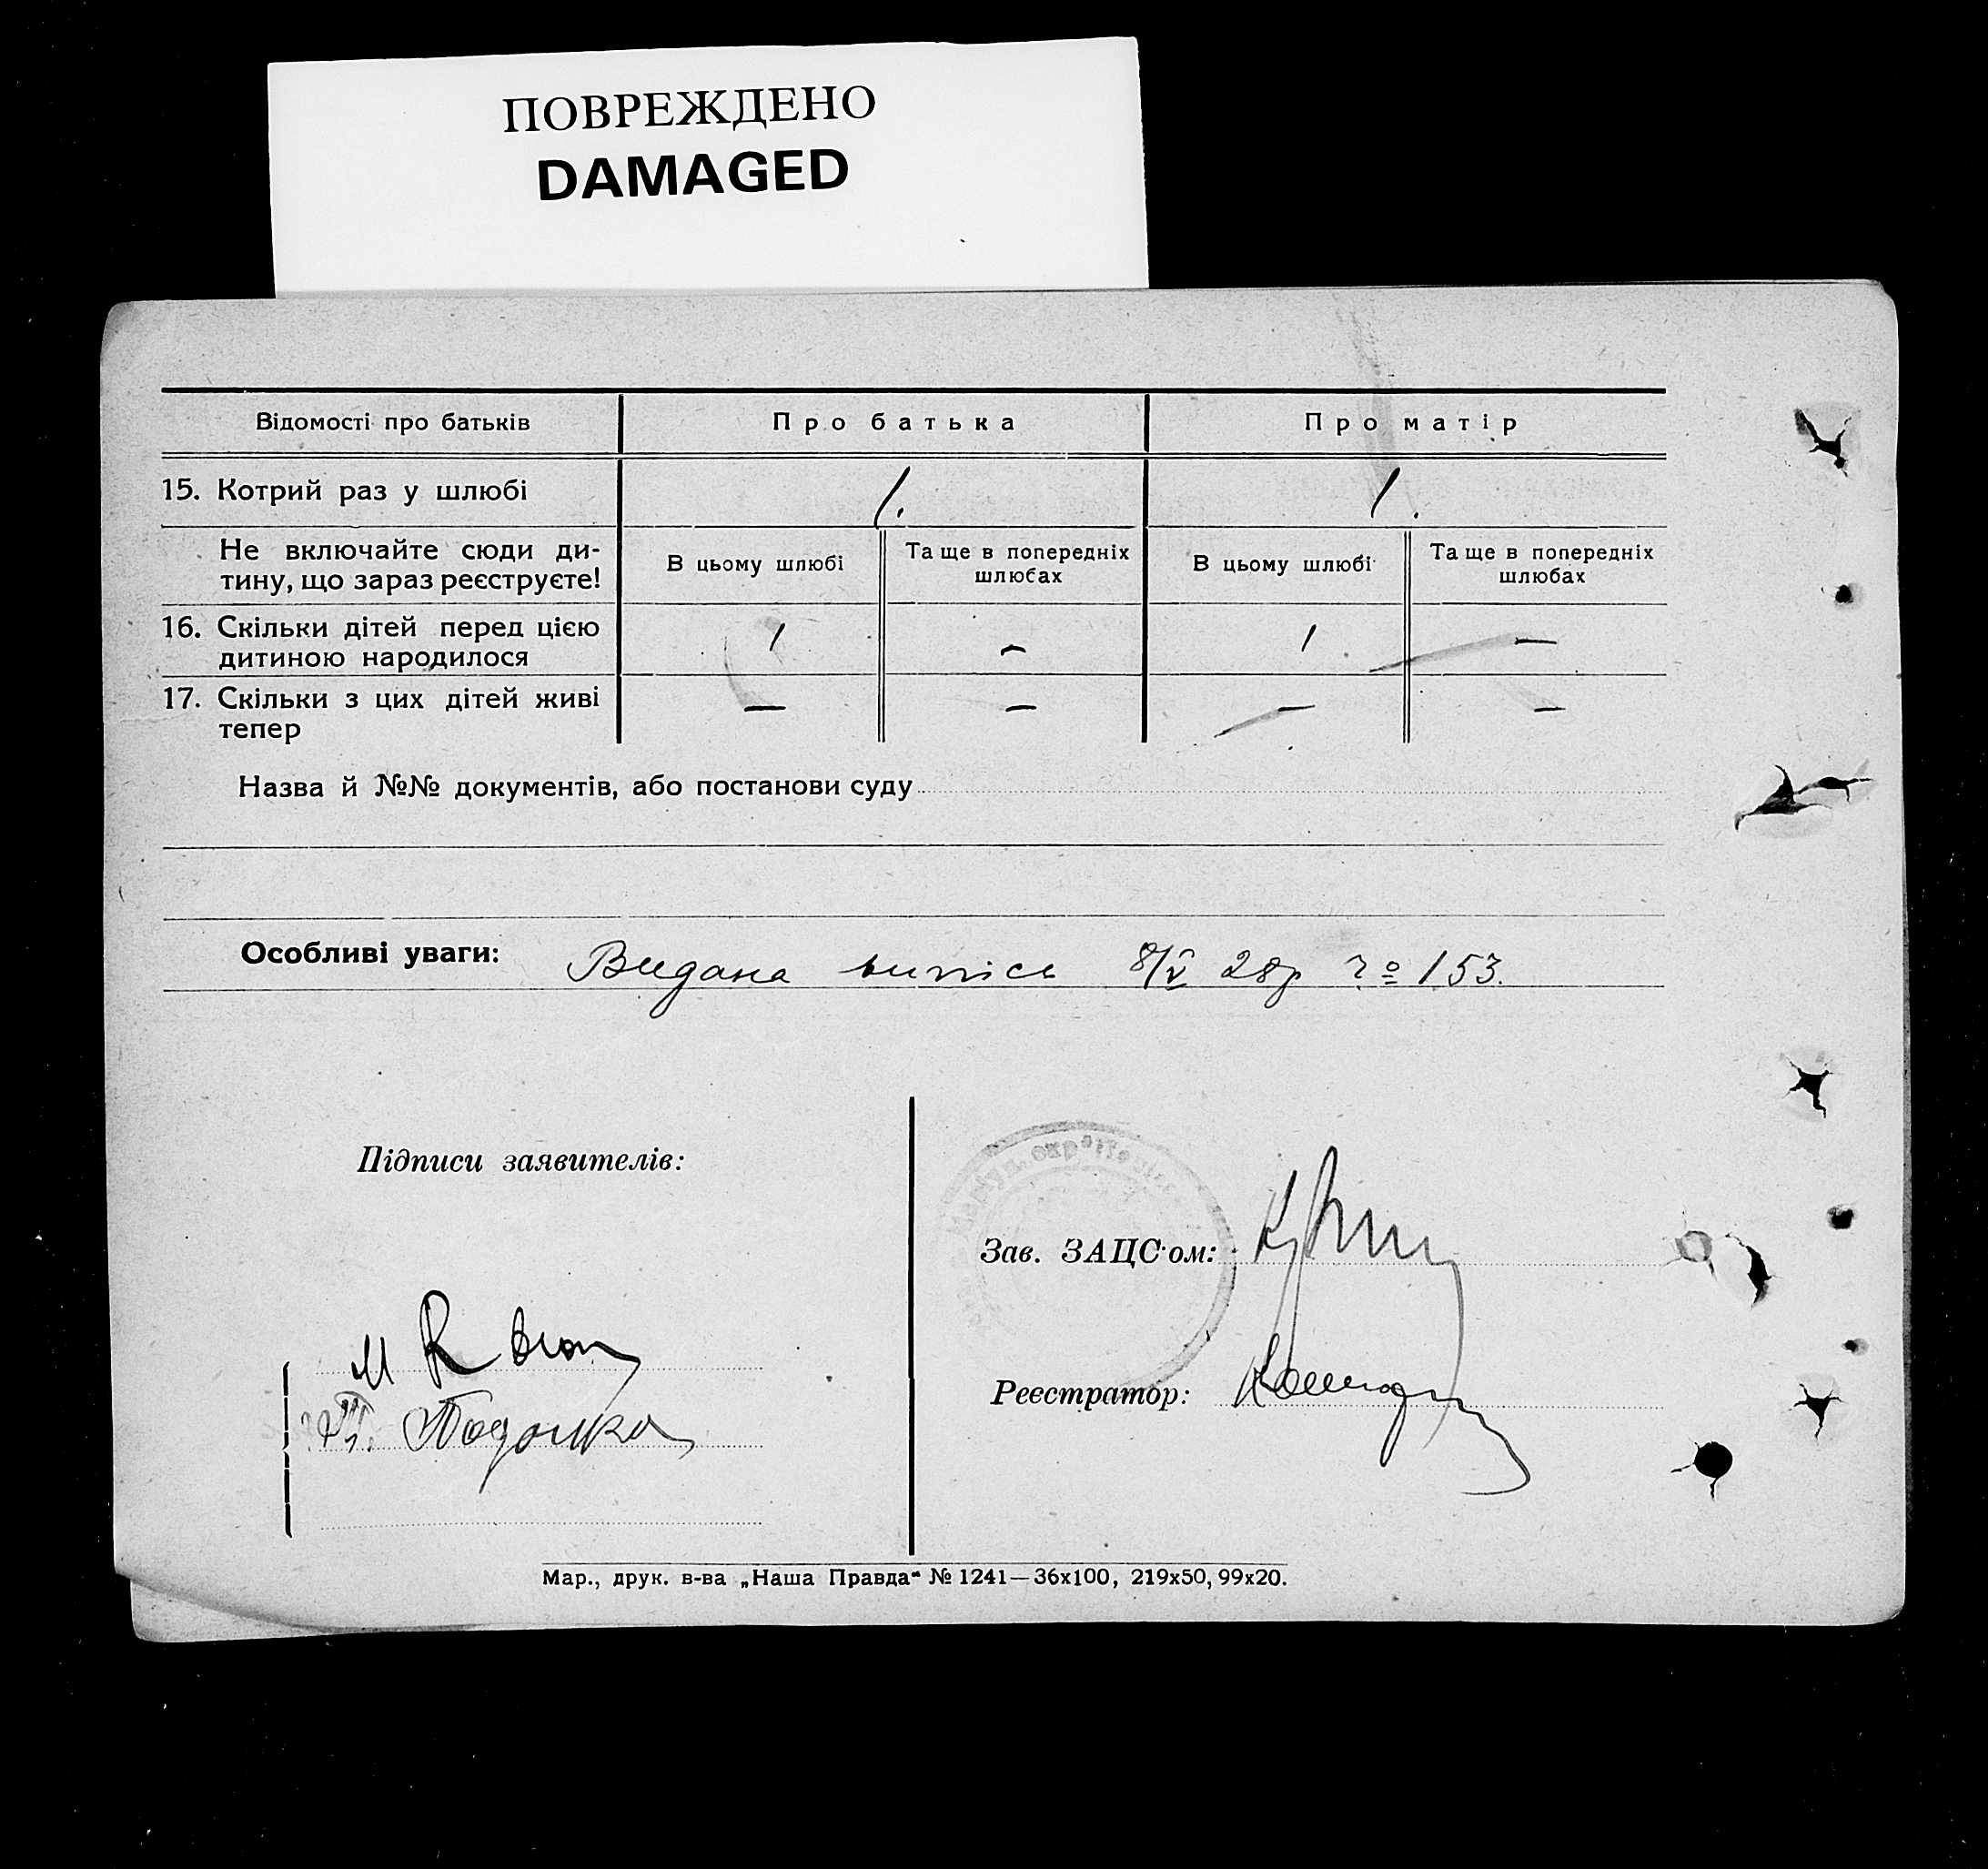 ПОВРЕЖДЕНО
DAMAGED
Відомості про батьків Про батька Про матір
15. Котрий раз у шлюбі 1. 1.
Не включайте сюди ди-
тину, що зараз реєструєте!
В цьому шлюбі
Та ще в попередніх
шлюбах
В цьому шлюбі
Та ще в попередніх
шлюбах
16. Скільки дітей перед цією
дитиною народилося
1 — 1 —
17. Скільки з цих дітей живі
тепер
— — — —
Назва й №№ документів, або постанови суду
Особливі уваги: Видана випись 8/V 28р № 153.
Підписи заявителів:
Зав. ЗАЦС'ом:
М
Реєстратор:
Мар., друк. в-ва „Наша Правда" № 1241—36х100, 219х50, 99х20.